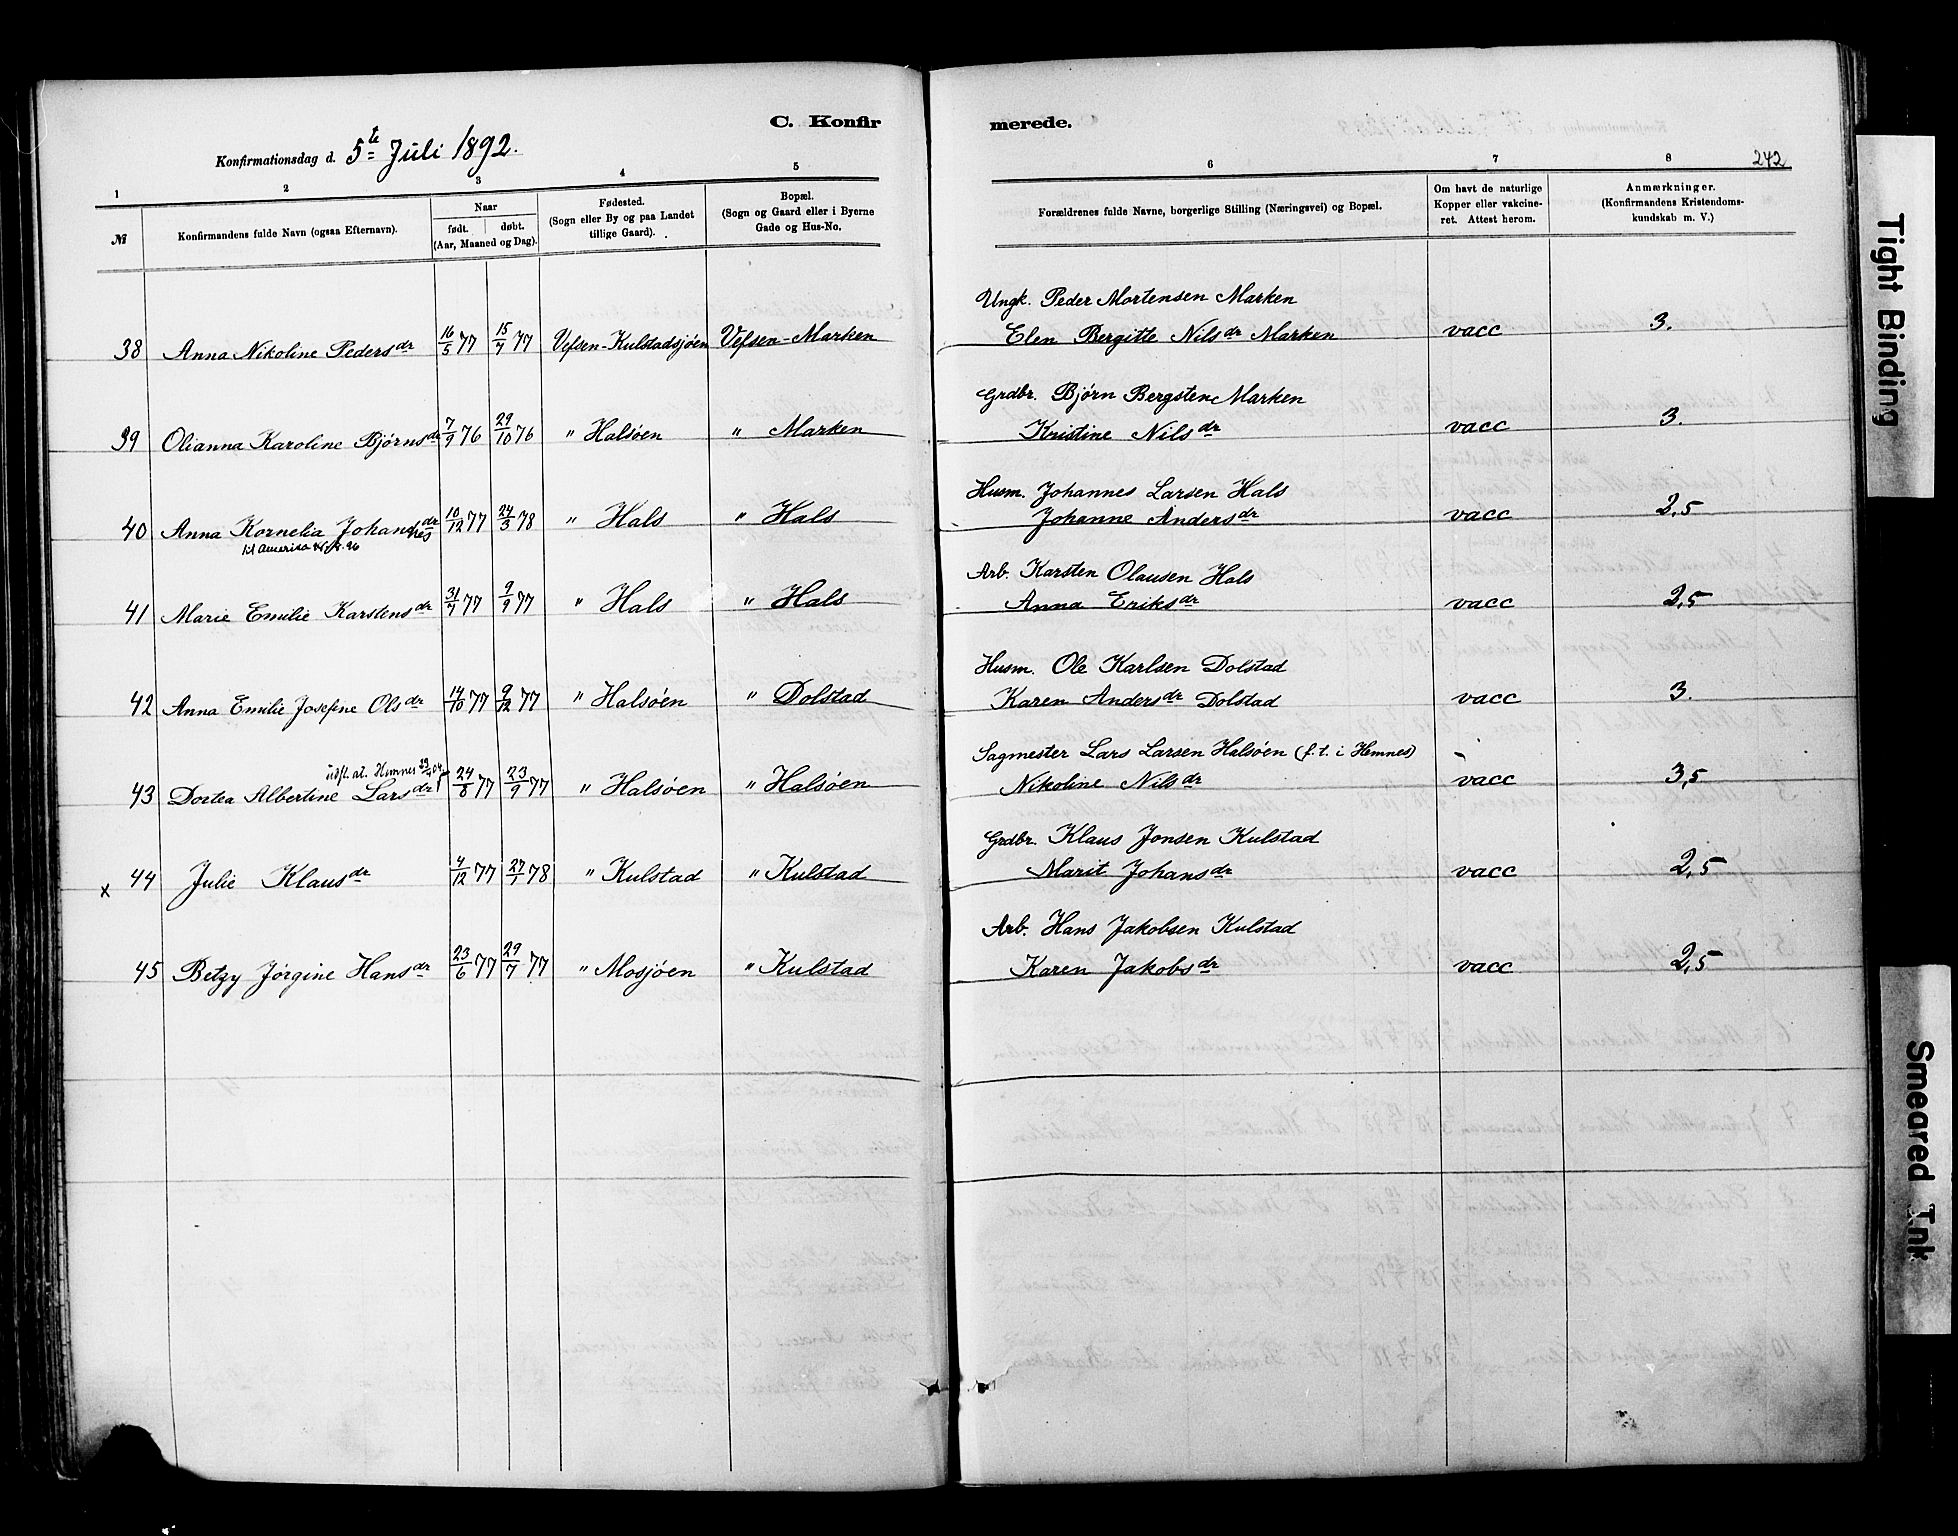 C. Konfirmerede.
Konfirmationsdag d. 5te Juli 1892.
242
1 2 3 4 5 6 7 8
№ Konfirmandens fulde Navn (ogsaa Efternavn). Naar født. døbt. (Aar, Maaned og Dag). Fødested. (Sogn eller By og paa Landet tillige Gaard). Bopæl. (Sogn og Gaard eller i Byerne Gade og Hus-No. Forældrenes fulde Navne, borgerlige Stilling (Næringsvei) og Bopæl. Om havt de naturlige Kopper eller vakcineret. Attest herom. Anmærkninger. (Konfirmandens Kristendomskundskab m. V.)
Ungk. Peder Mortensen Marken
38 Anna Nikoline Pedersdr 16/5 77 15/7 77 Vefsen-Kulstadsjøen Vefsen-Marken Elen Bergitte Nilsdr Marken vacc 3.
Grdbr. Bjørn Bergsten Marken
39 Olianna Karoline Bjørnsdr 7/9 76 29/10 76 " Halsøen " Marken Kristine Nilsdr vacc 3.
Husm. Johannes Larsen Hals
40 Anna Kornelia Johannesdr 10/12 77 24/3 78 " Hals " Hals Johanne Andersdr vacc 2,5
til Amerika
Arb. Karsten Olausen Hals
41 Marie Emilie Karstensdr 31/7 77 9/9 77 " Hals " Hals Anna Eriksdr vacc 2,5
Husm. Ole Karlsen Dolstad
42 Anna Emilie Josefine Olsdr 14/10 77 9/12 77 " Halsøen " Dolstad Karen Andersdr Dolstad vacc 3.
Sagmester Lars Larsen Halsøen (f. t. i Hemnes)
udfl. at. Hemnes
43 Dortea Albertine Larsdr 24/8 77 23/9 77 " Halsøen " Halsøen Nikoline Nilsdr vacc 3,5
Grdbr. Klaus Jonsen Kulstad
x 44 Julie Klausdr 4/12 77 27/1 78 " Kulstad " Kulstad Marit Johansdr vacc 2,5
Arb. Hans Jakobsen Kulstad
45 Betzy Jørgine Hansdr 23/6 77 29/7 77 " Mosjøen " Kulstad Karen Jakobsdr vacc 2,5
Tight Binding
Smeared Ink